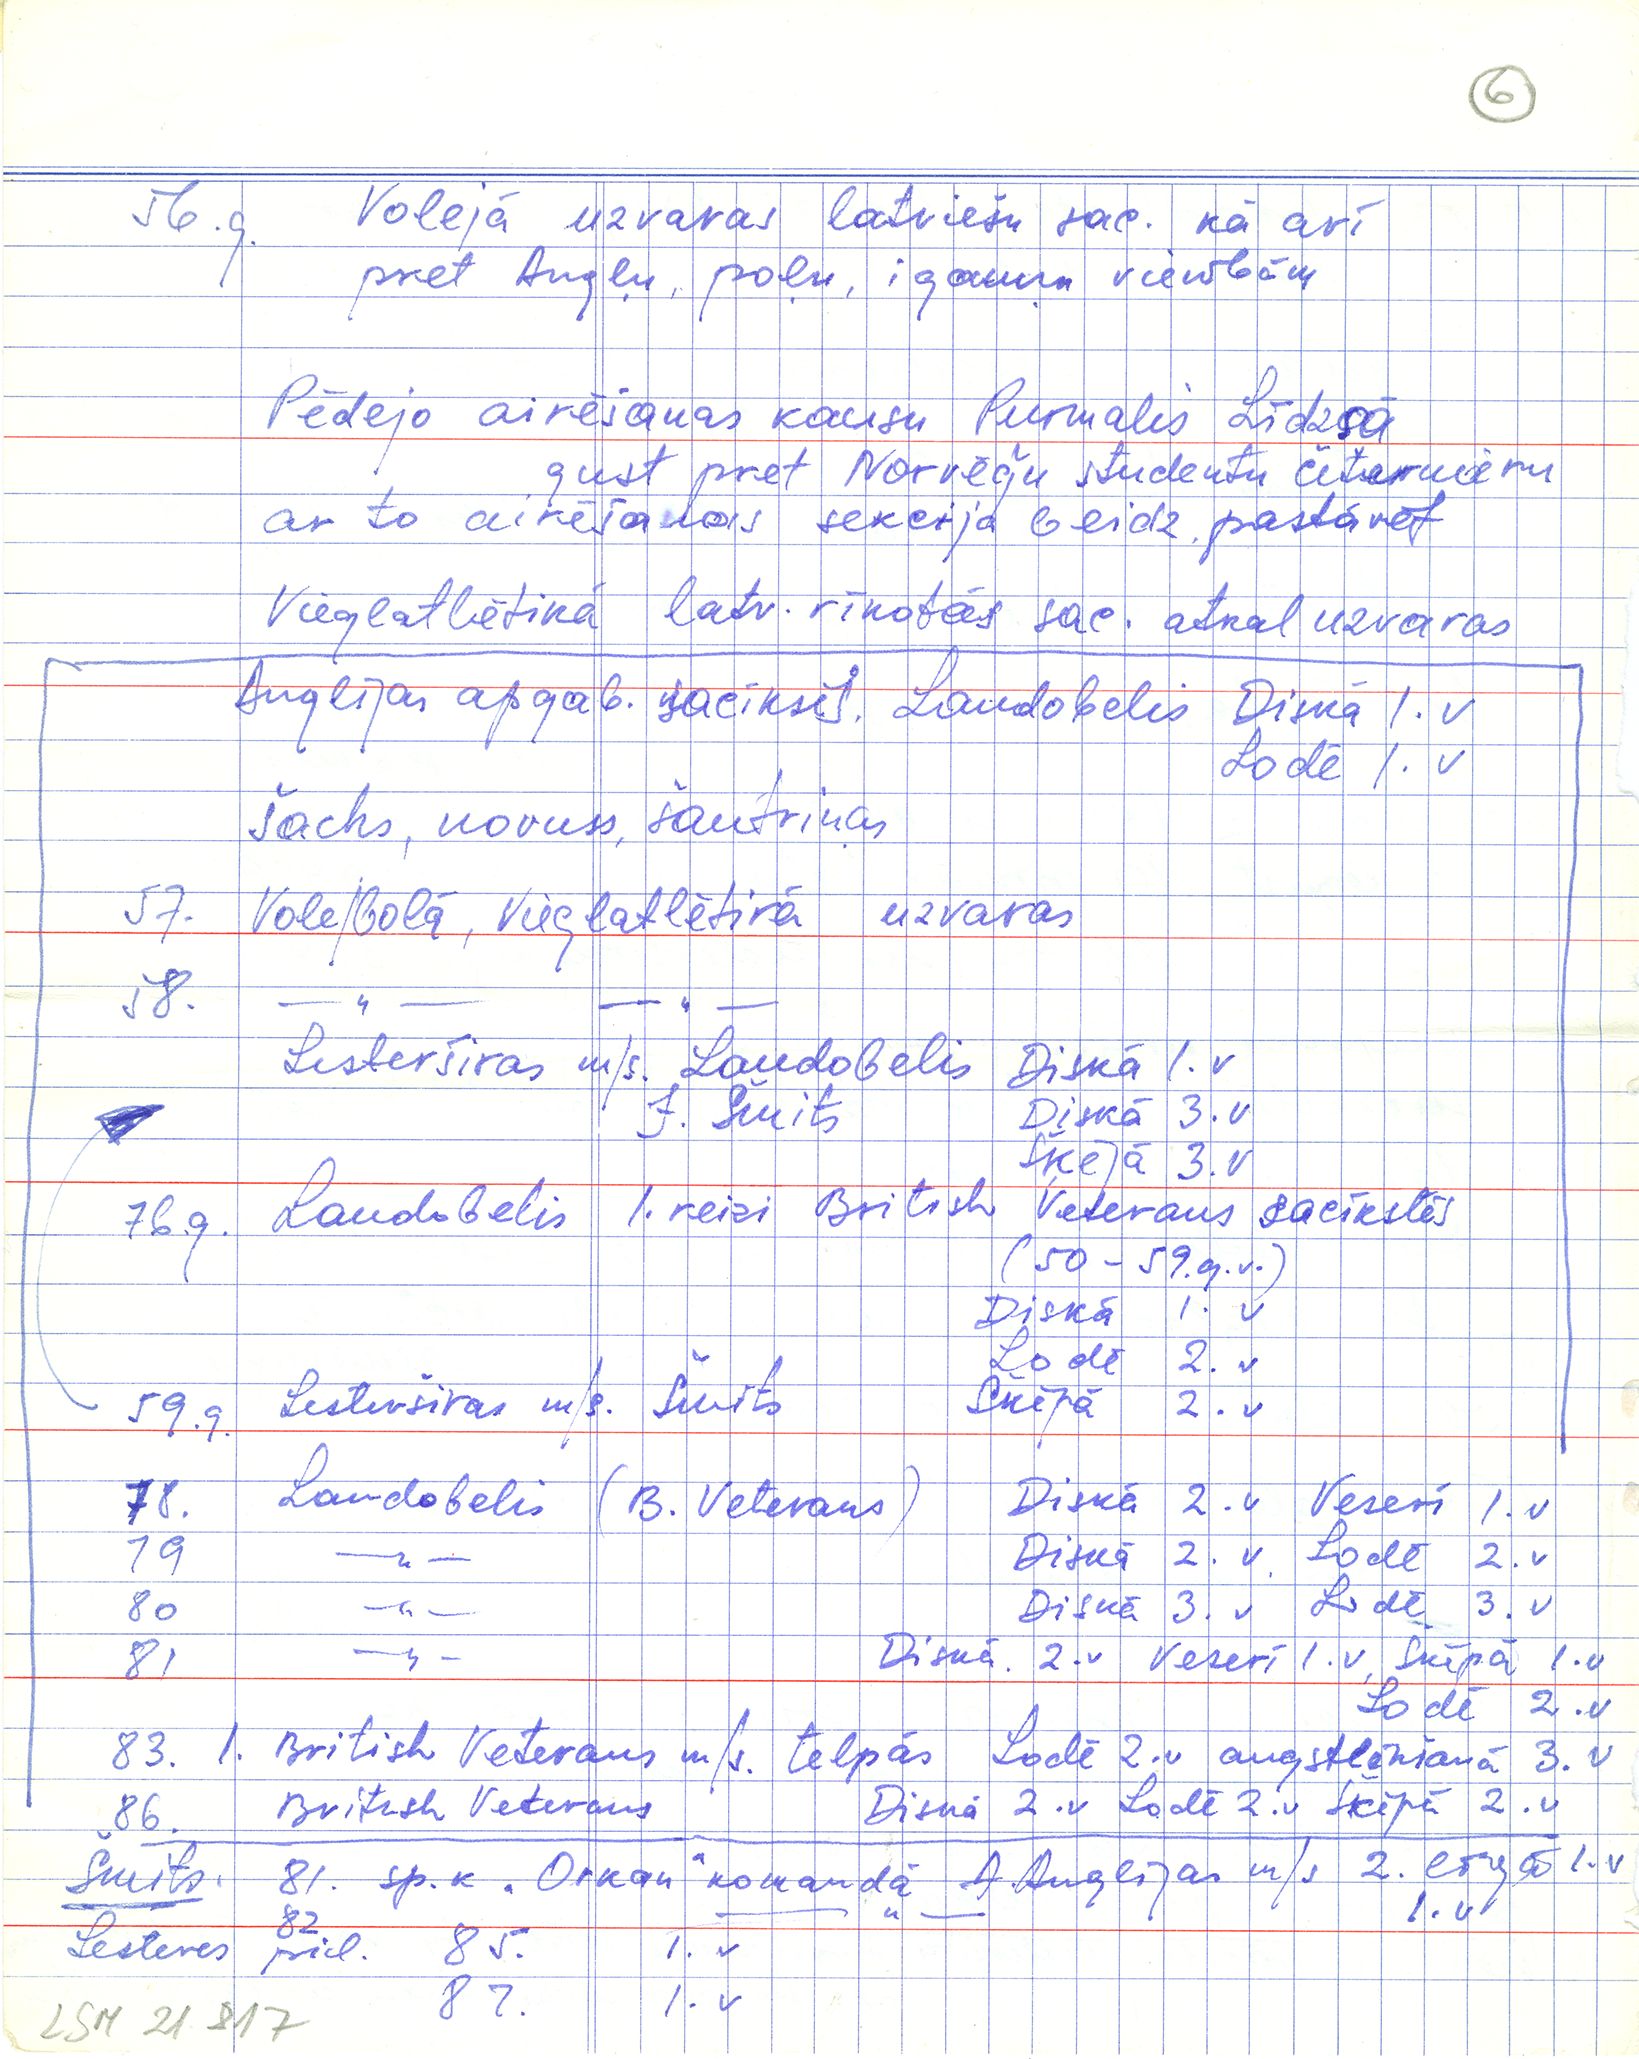 6
56.g. Volejā uzvaras latviešu sac. kā arī
pret Angļu, poļu, igauņu vienībām
Pēdejo airēšanas kausu Purmalis Līdzsā
gust pret Norvēģu studentu četernieru
ar to airēšanas sekcija beidz pastāvēt
Vieglatlētikā latv. rīkotās sac. atkal uzvaras
Anglijas apgab. sacīkstēs. Laudobelis Diskā 1. v
Lodē 1. v
Šachs, novuss, šautriņas
57. Volejbolā, Vieglatlētikā uzvaras
58. — " — — " —
Lesteršīras m/s. Laudobelis Diskā 1. v
J. Šmits Diskā 3. v
Šķējā 3. v
76.g. Laudobelis 1. reizi British Veterans sacīkstēs
(50 - 59.g.v.)
Diskā 1. v
Lodē 2. v
59.g. Lesteršīras m/s. Šmits Šķēpā 2. v
78. Laudobelis (B. Veterans) Diskā 2. v Veserī 1. v
79 — " — Diskā 2. v, Lodē 2. v
80 — " — Diskā 3. v Lodē 3. v
81 — " - Diskā. 2. v Veserī 1. v, Šķēpā 1. v
Lodē 2. v
83. 1. British Veterans m/s. telpās Lodē 2. v augstlēkšanā 3. v
86. British Veterans Diskā 2. v Lodē 2. v Šķēpā 2. v
Šmits. 81. sp.k. "Orkan" komandā A. Anglijas m/s 2. līgā 1. v
82 — " — 1. v
Lesteres priel. 85. 1. v
87. 1. v
LSM 21 817